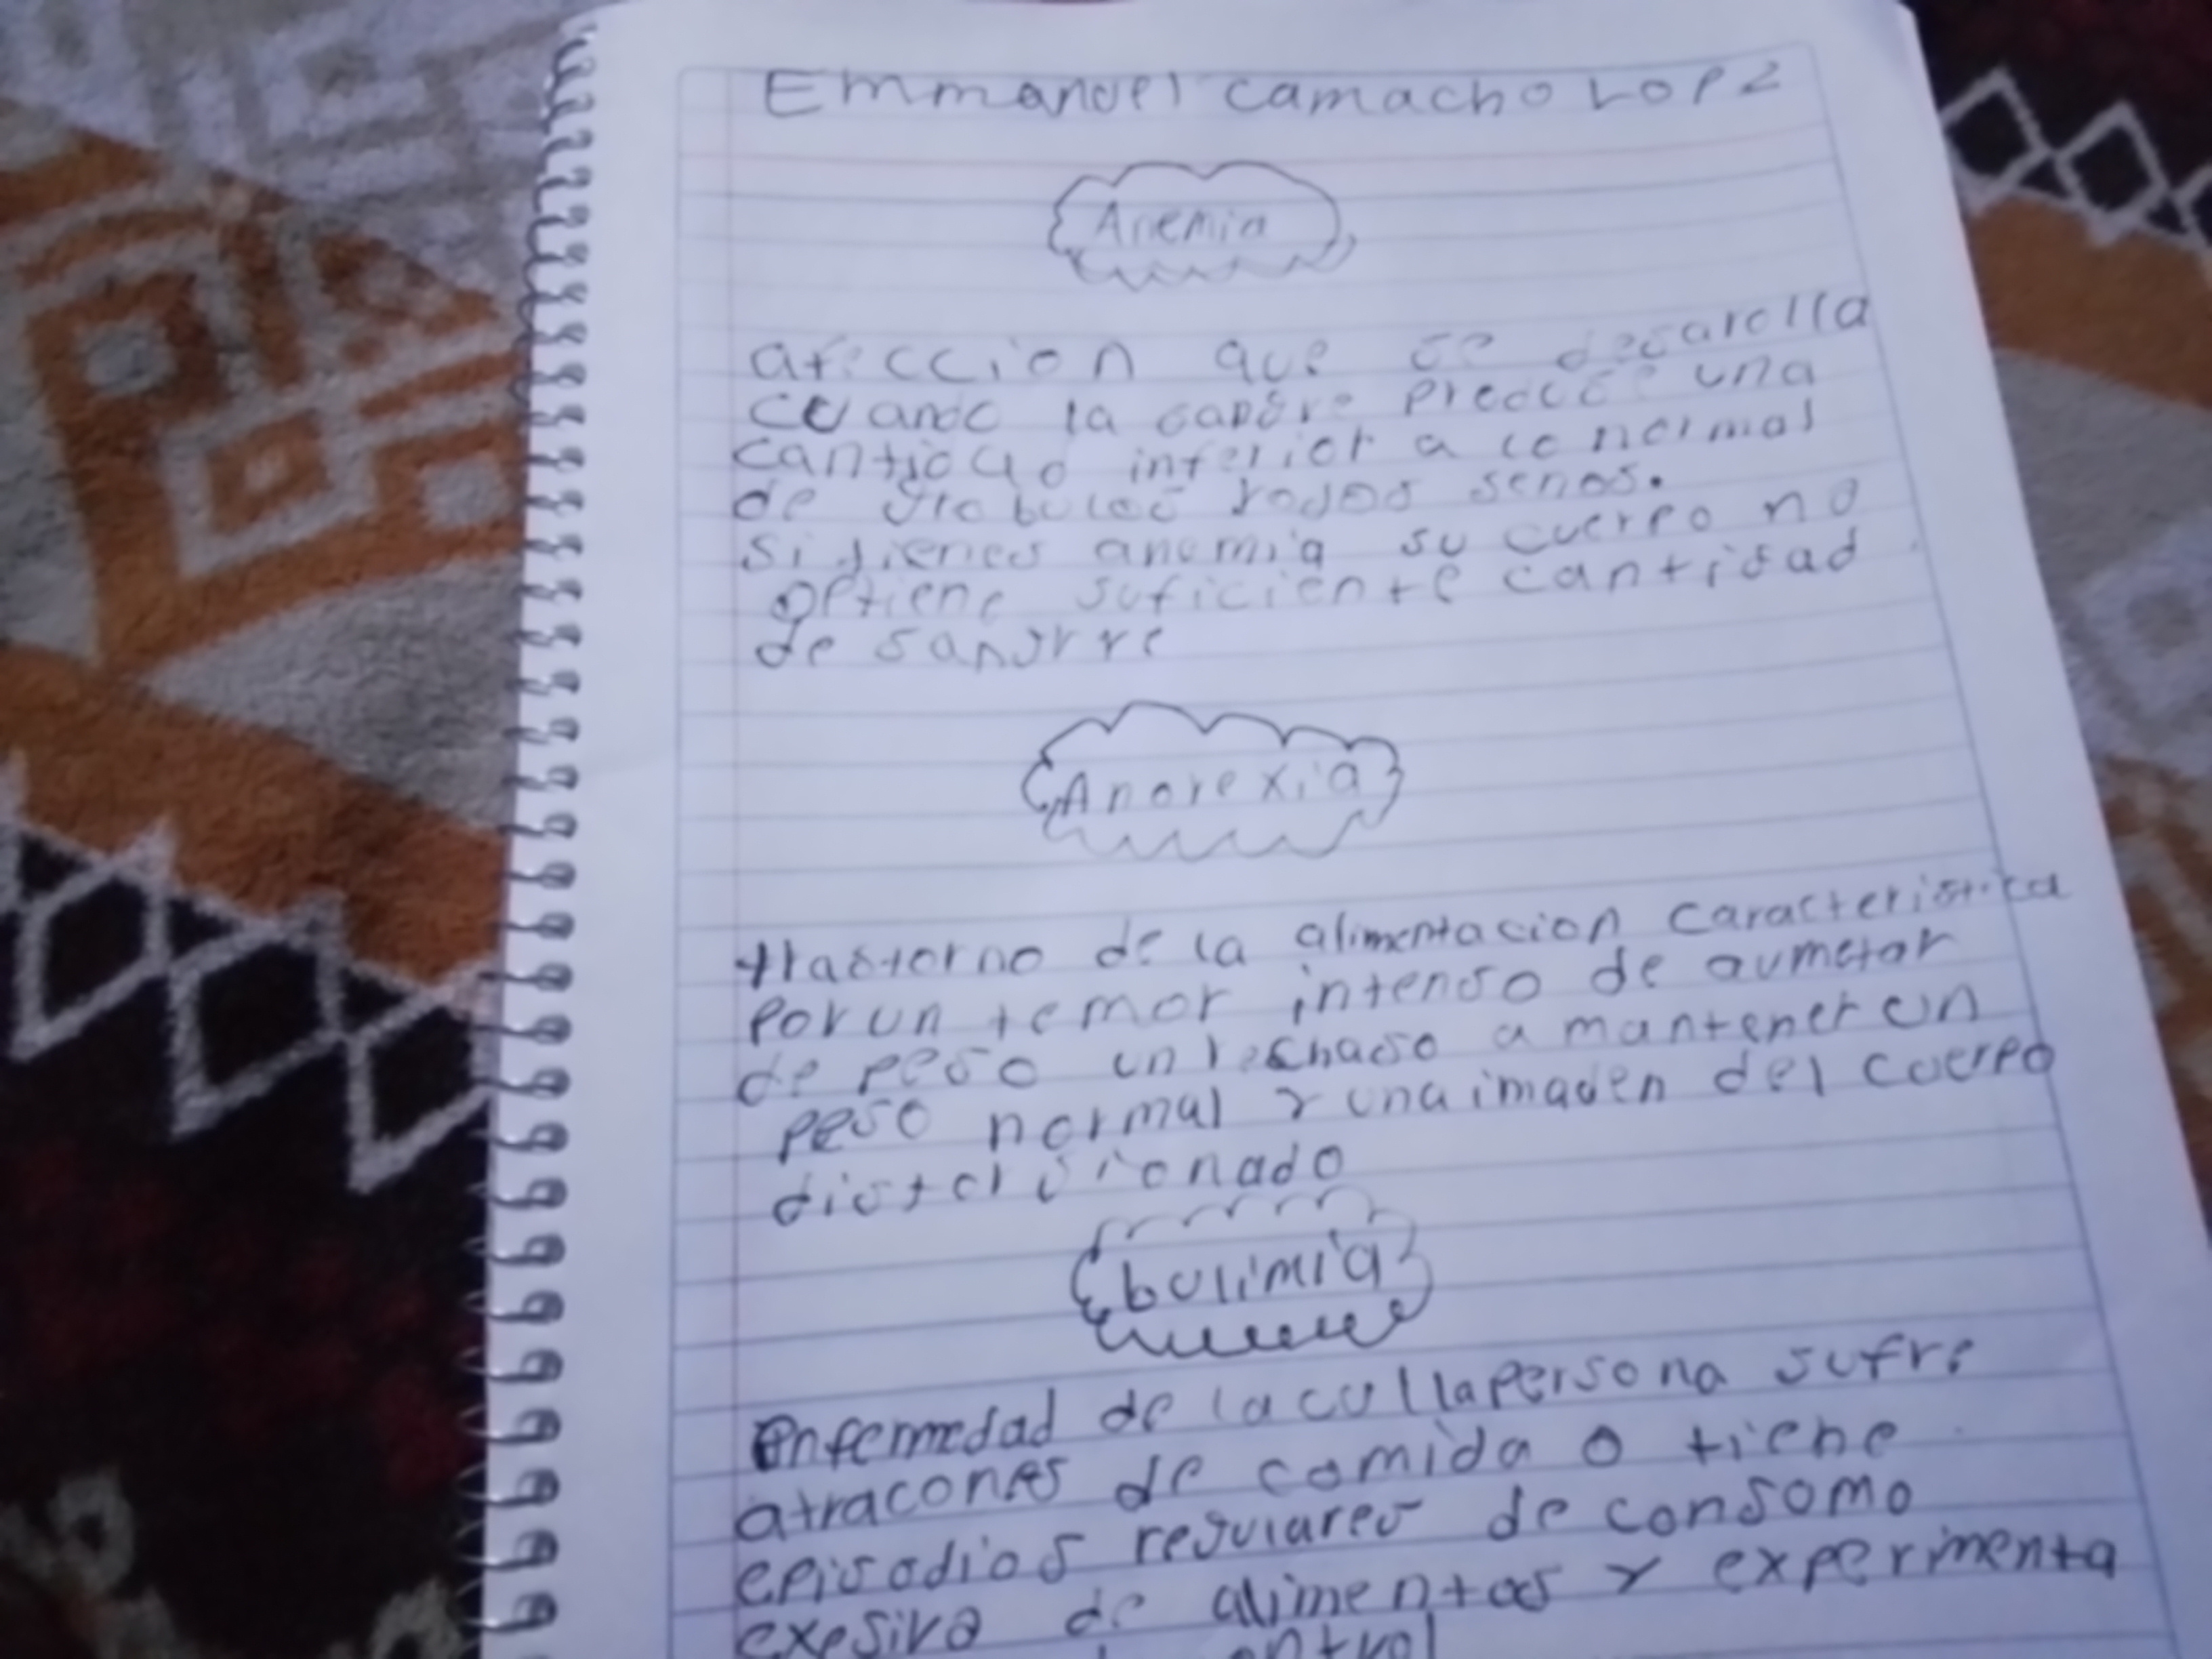 Emmanuel camacho Lopz
Anemia
afeccion que se desarolla
cuando la sangre produce una
cantidad inferior a lo normal
de globulos rojos senos.
si tienes anemia su cuerpo no
optiene suficiente cantidad
de sangrre
Anorexia
trastorno de la alimentacion caracteristica
por un temor intenso de aumetar
de peso un rechaso a mantener un
peso normal y una imagen del cuerpo
distorsionado
bulimia
enfermedad de la culla persona sufre
atracones de comida o tiene
episodios regulares de consomo
exesivo de alimentos y experimenta